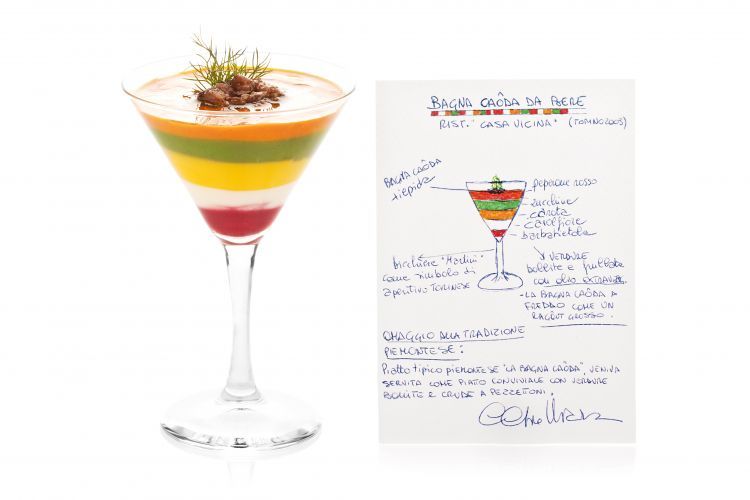 BAGNA CAÔDA DA BERE
RIST. "CASA VICINA" (TORINO 2005)
BAGNA CAÔDA
tiepida
peperone rosso
zucchine
carota
cavolfiore
barbabietola
bicchiere "Martini"
come simbolo di
aperitivo TORINESE
VERDURE
bollite e frullate
con olio EXTRAVERG.
- LA BAGNA CAÔDA A
FREDDO COME UN
RAGÔUT GROSSO.
OMAGGIO ALLA TRADIZIONE
PIEMONTESE:
Piatto tipico piemontese "LA BAGNA CAÔDA", VENIVA
SERVITA COME PIATO CONVIVIALE CON VERDURE
BOLLITE E CRUDE A PEZZETTONI.